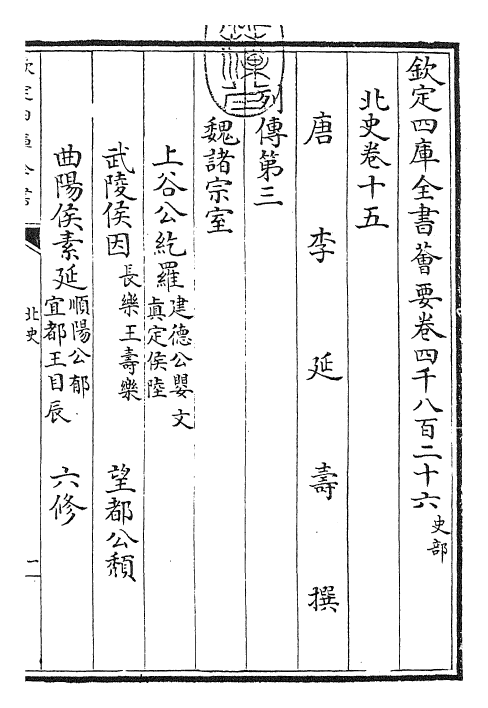 欽定四庫全書薈要卷四千八百二十六 史部
北史卷十五
唐 李 延 壽 撰
列傳第三
魏諸宗室
上谷公紇羅 建德公嬰文 真定侯陸
武陵侯因 長樂王壽樂 望都公頽
曲陽侯素延 順陽公郁 宜都王目辰 六修
欽定四庫全書
北史
二